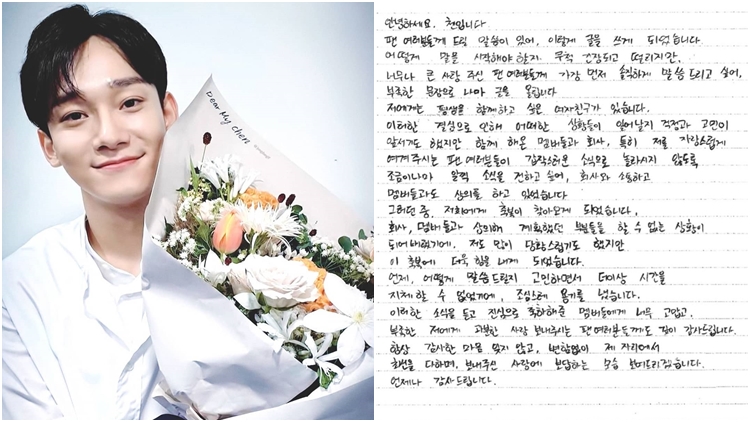 Dear My Chen
안녕하세요. 첸입니다
팬 여러분들께 드릴 말씀이 있어, 이렇게 글을 쓰게 되었습니다.
어떻게 말을 시작해야 할지, 무척 긴장되고 떨리지만,
너무나 큰 사랑 주신 팬 여러분들께 가장 먼저 솔직하게 말씀드리고 싶어,
부족한 문장으로 나마 글을 올립니다
저에게는 평생을 함께하고 싶은 여자친구가 있습니다.
이러한 결심으로 인해 어떠한 상황들이 일어날지 걱정과 고민이
앞서기도 했지만 함께 해온 멤버들과 회사, 특히 저를 자랑스럽게
여겨주시는 팬 여러분들이 갑작스러운 소식으로 놀라시지 않도록
조금이나마 일찍 소식을 전하고 싶어, 회사와 소통하고
멤버들과도 상의를 하고 있었습니다
그러던 중, 저희에게 축복이 찾아오게 되었습니다.
회사, 멤버들과 상의해 계획했던 부분들을 할 수 없는 상황이
되어버렸기에. 저도 많이 당황스럽기도 했지만
이 축복에 더욱 힘을 내게 되었습니다.
언제, 어떻게 말씀드릴지 고민하면서 더이상 시간을
지체할 수 없었기에, 조심스레 용기를 냈습니다.
이러한 소식을 듣고 진심으로 축하해준 멤버들에게 너무 고맙고.
부족한 저에게 과분한 사랑 보내주시는 팬 여러분들께도 깊이 감사드립니다.
항상 감사한 마음 잊지 않고, 변함없이 제 자리에서
최선을 다하며, 보내주신 사랑에 보답하는 모습 보여드리겠습니다.
언제나 감사드립니다.